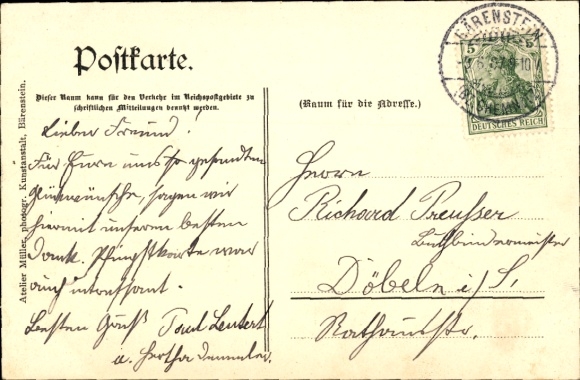 Postkarte.
Dieser Raum kann für den Verkehr im Reichspostgebiete zu
schriftlichen Mitteilungen benutzt werden.
(Raum für die Adresse.)
Atelier Müller, photogr. Kunstanstalt, Bärenstein.
BÄRENSTEIN
5
DEUTSCHES REICH
Lieber Freund!
Für Eure uns so gesandten
Glückwünsche, sagen wir
hiermit unseren besten
Dank. Pfingstkarte war
auch interessant.
Besten Gruß Paul Leutert
u. Hertha Demmler.
Herrn
Richard Preußer
Buchbindermeister
Döbeln i/S.
Rathausstr.